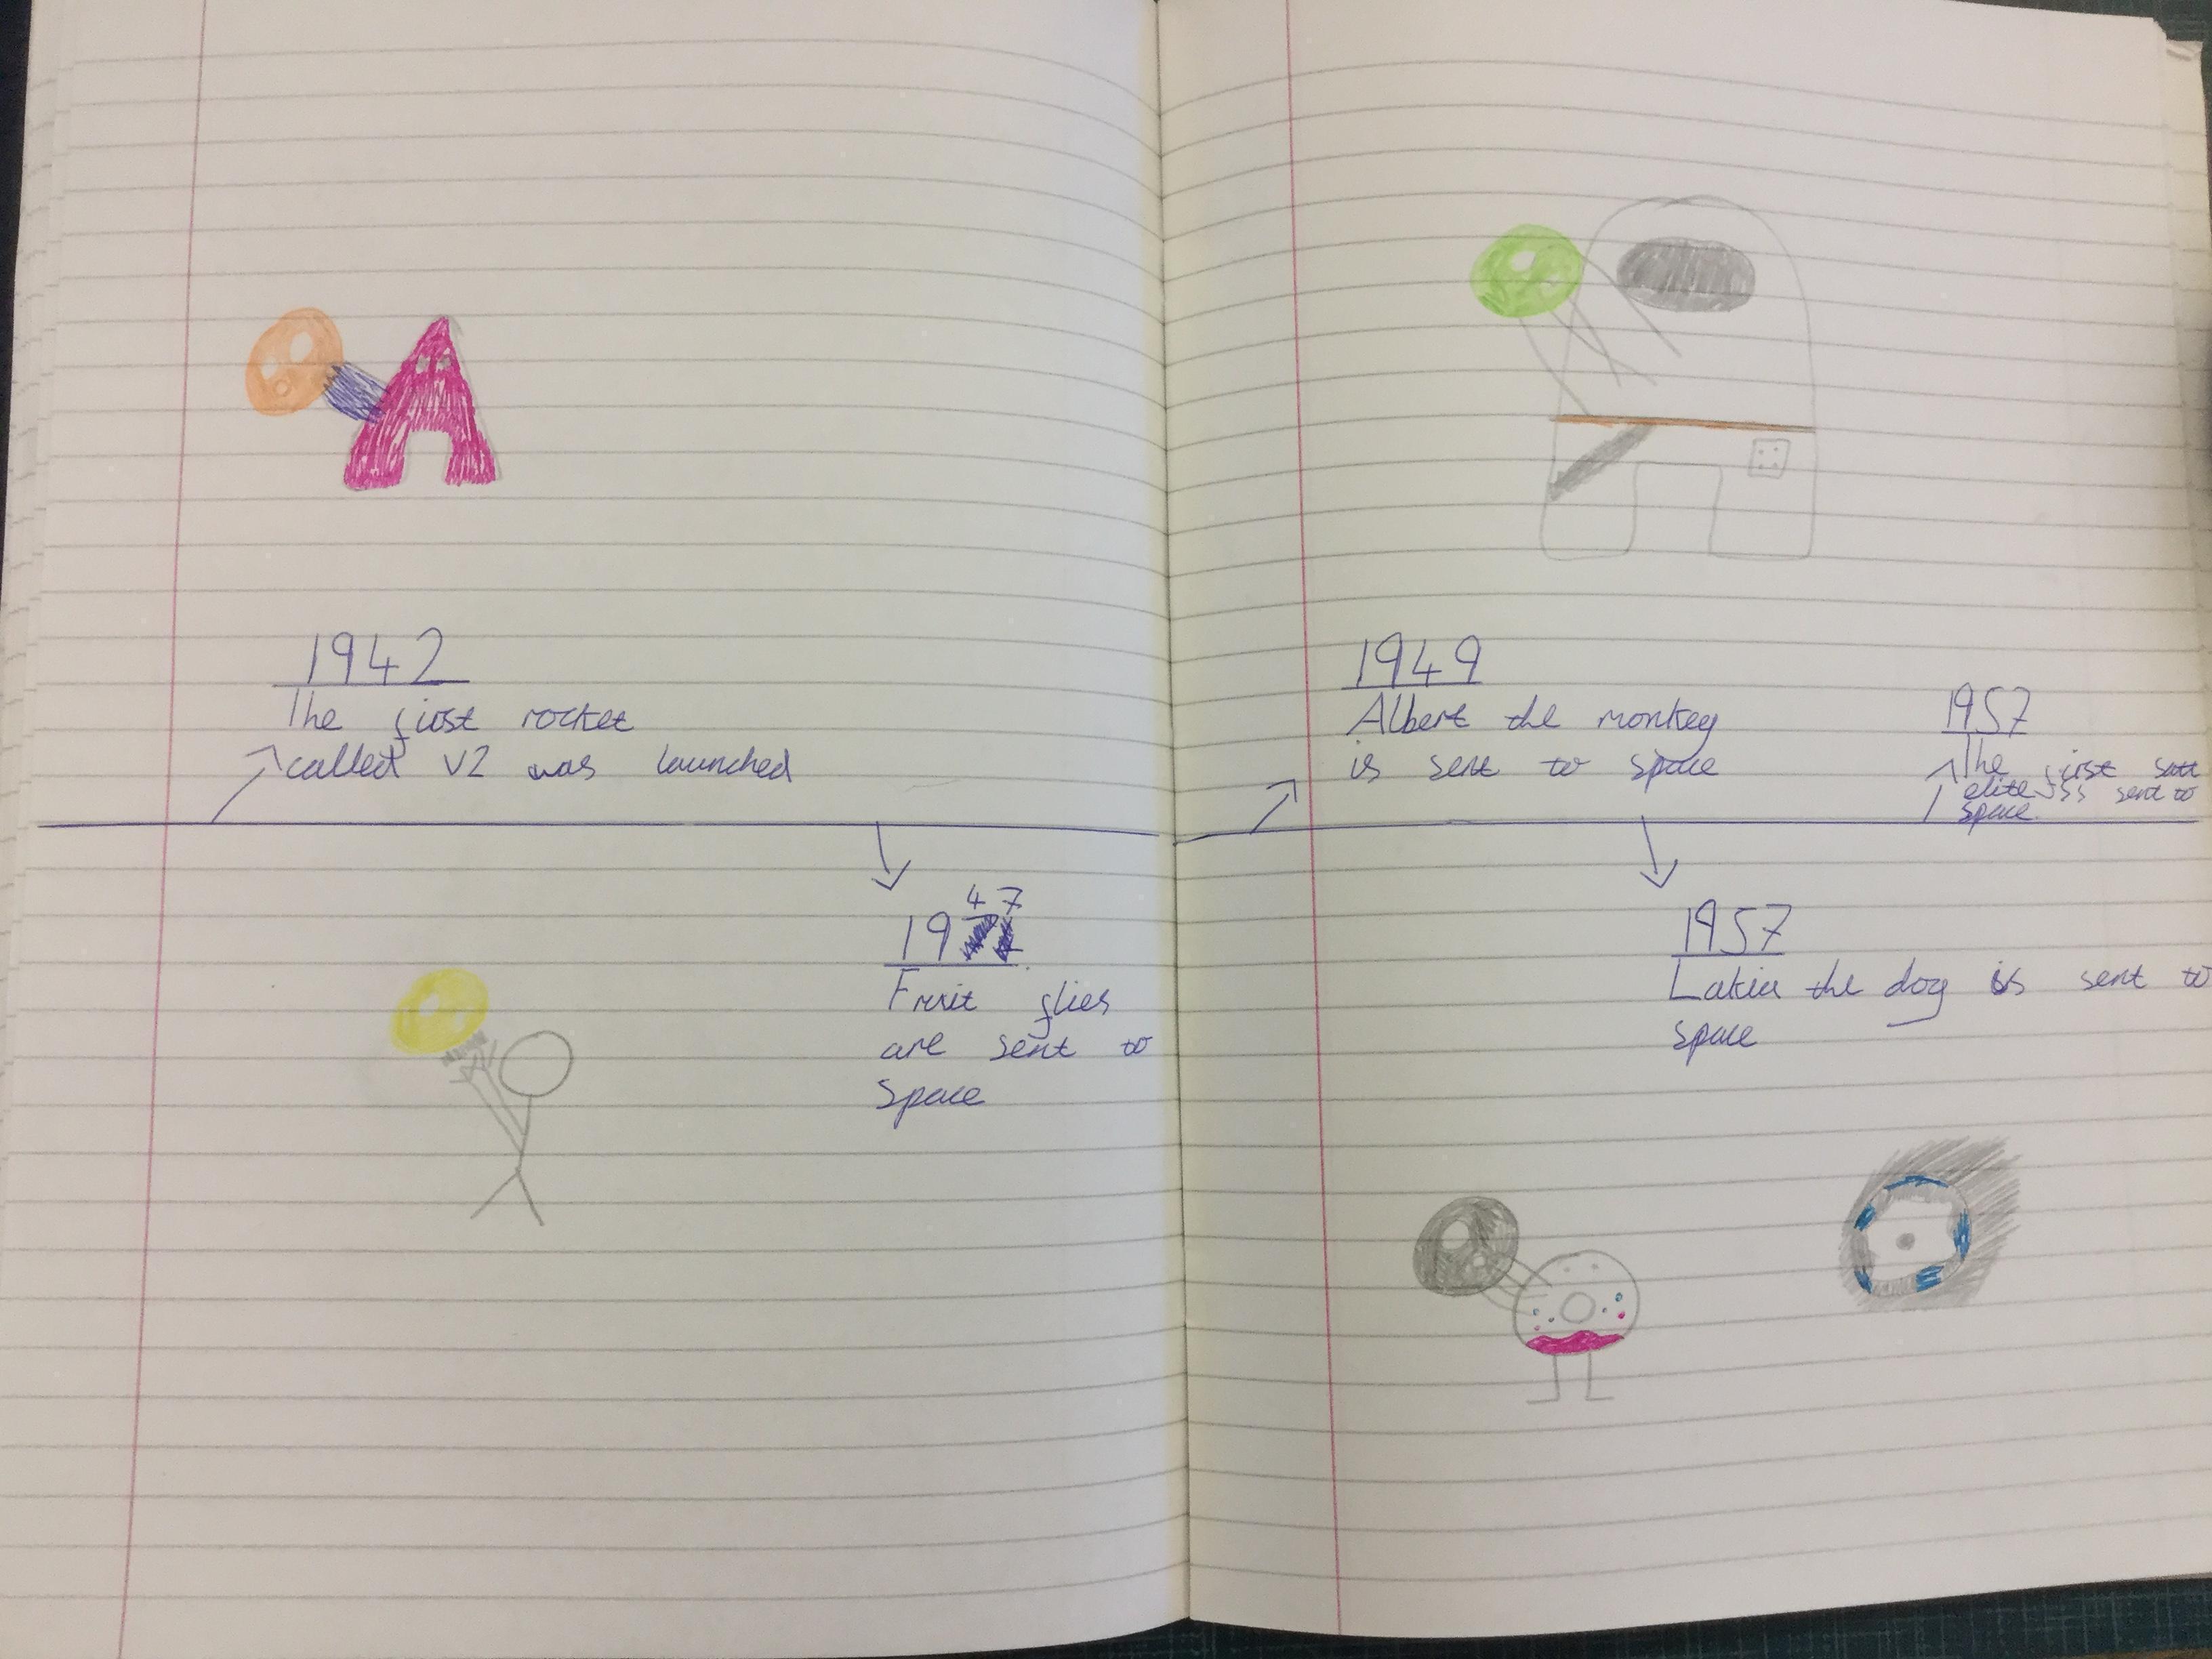 1942
The first rocket
called V2 was launched
1947
Fruit flies
are sent to
Space
1949
Albert the monkey
is sent to space
1957
The first satt
elite is sent to
space.
1957
Lakia the dog is sent to
space